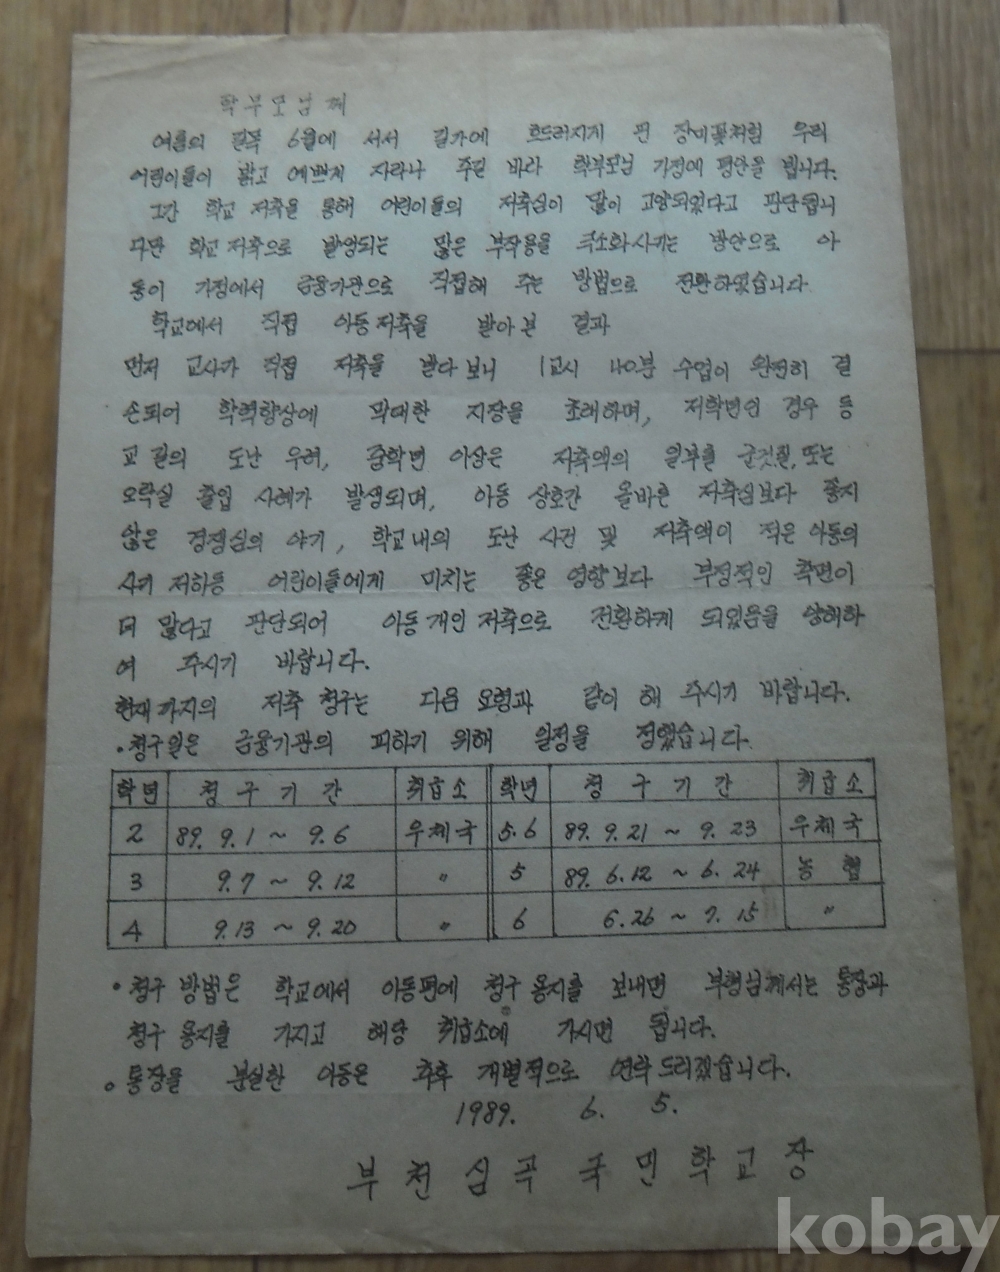 학부모님께
여름의 길목 6월에 서서 길가에 흐드러지게 핀 장미꽃처럼 우리
어린이들이 밝고 예쁘게 자라나 주길 바라 학부모님 가정에 평안을 빕니다.
그간 학교 저축을 통해 어린이들의 저축심이 많이 고양되었다고 판단됩니
다만 학교 저축으로 발생되는 많은 부작용을 극소화시키는 방안으로 아
동이 가정에서 금융기관으로 직접해 주는 방법으로 전환하였습니다.
학교에서 직접 아동저축을 받아 본 결과
먼저 교사가 직접 저축을 받다 보니 1교시 40분 수업이 완전히 결
손되어 학력향상에 막대한 지장을 초래하며, 저학년인 경우 등
교 길의 도난 우려, 중학년 이상은 저축액의 일부를 군것질, 또는
오락실 출입 사례가 발생되며, 아동 상호간 올바른 저축심보다 좋지
않은 경쟁심의 야기, 학교내의 도난 사건 및 저축액이 적은 아동의
사기 저하등 어린이들에게 미치는 좋은 영향보다 부정적인 측면이
더 많다고 판단되어 아동개인저축으로 전환하게 되었음을 양해하
여 주시기 바랍니다.
현재까지의 저축 청구는 다음 요령과 같이 해 주시기 바랍니다.
• 청구일은 금융기관의 피하기 위해 일정을 정했습니다.
학년 청구기간 취급소 학년 청구기간 취급소
2 89. 9.1 ~ 9.6 우체국 5.6 89. 9.21 ~ 9.23 우체국
3 9.7 ~ 9.12 〃 5 89. 6.12 ~ 6.24 농협
4 9.13 ~ 9.20 〃 6 6.26 ~ 7.15 〃
• 청구 방법은 학교에서 아동편에 청구 용지를 보내면 부형님께서는 통장과
청구 용지를 가지고 해당 취급소에 가시면 됩니다.
○ 통장을 분실한 아동은 추후 개별적으로 연락드리겠습니다.
1989. 6. 5.
부천심곡국민학교장
kobay